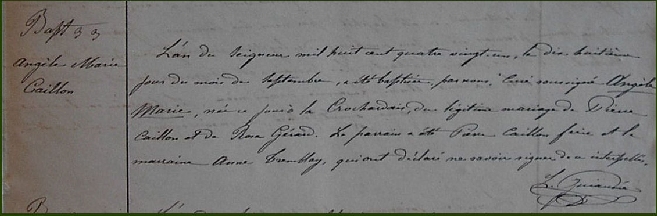 Bapt 33
Angèle Marie
Caillon
L'an du Seigneur mil huit cent quatre vingt un, le dix huitième
jour du mois de Septembre, a été baptisée, par nous, Curé soussigné Angèle
Marie, née ce jour à la, du légitime mariage de Pierre
Caillon et de Rose Gérard. Le parrain a été Pierre Caillon frère et la
marraine Anne Tremblay, qui ont déclaré ne savoir signer de ce interpellés.